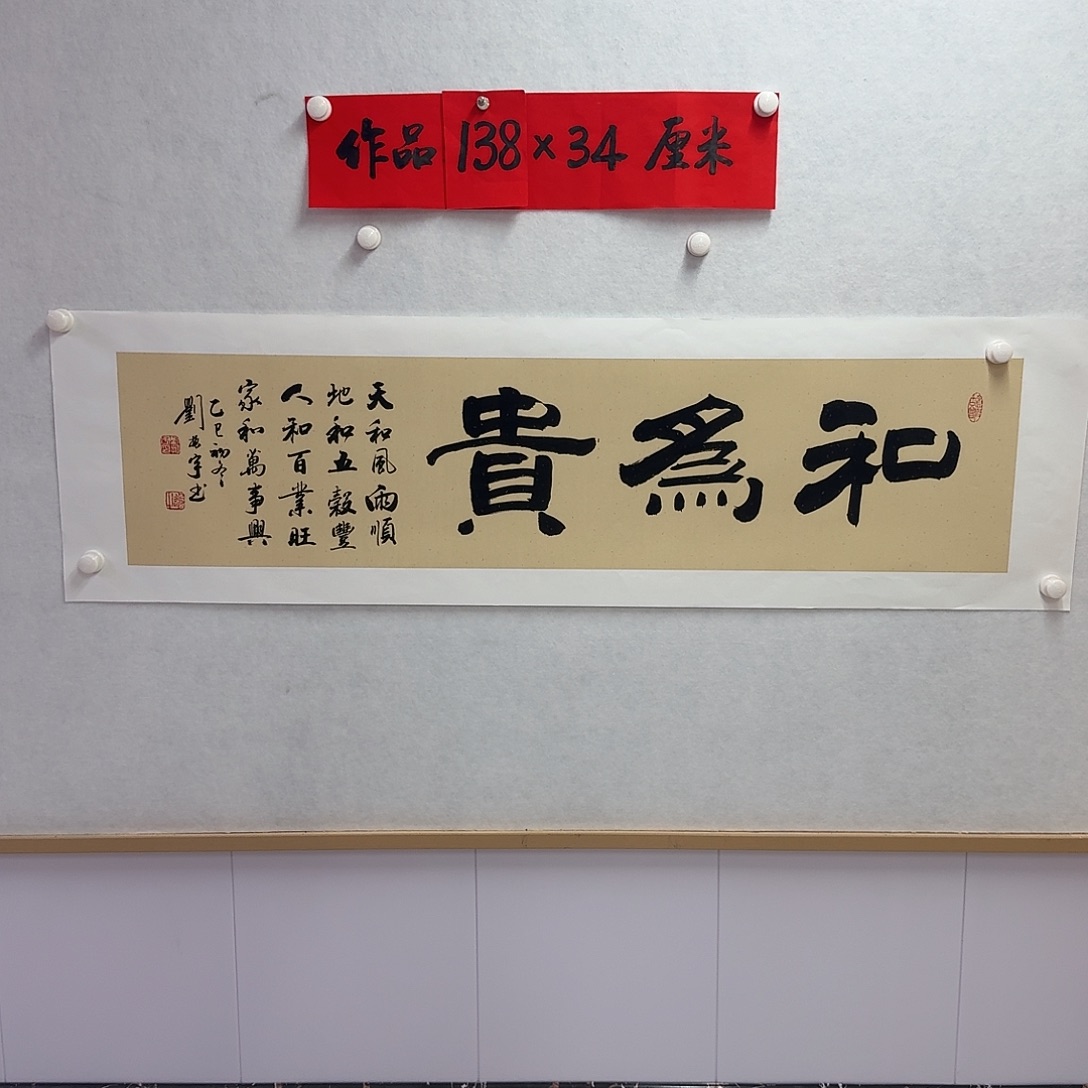 作品 138×34 厘米
和為貴
天和風雨順
地和五穀豐
人和百業旺
家和萬事興
乙巳初冬
劉宇书